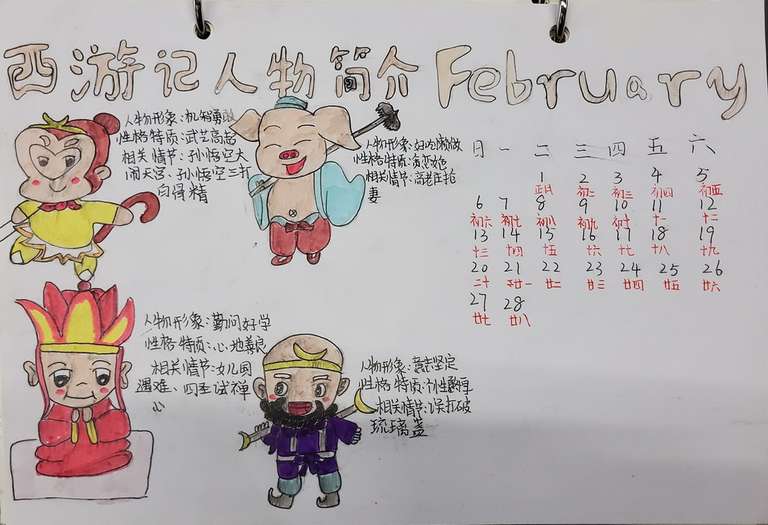 西游记人物简介 February
人物形象:机智勇敢
性格特质:武艺高超
相关情节:孙悟空大
闹天宫、孙悟空三打
白骨精
人物形象:好吃懒做
性格特质:贪恋女色
相关情节:高老庄抢
妻
人物形象:勤问好学
性格特质:心地善良
相关情节:女儿国
遇难、四圣试禅
心
人物形象:意志坚定
性格特质:个性敦厚
相关情节:误打破
琉璃盏
日 一 二 三 四 五 六
1 2 3 4 5
正月 初二 初三 初四 初五
6 7 8 9 10 11 12
初六 初七 初八 初九 初十 十一 十二
13 14 15 16 17 18 19
十三 十四 十五 十六 十七 十八 十九
20 21 22 23 24 25 26
二十 廿一 廿二 廿三 廿四 廿五 廿六
27 28
廿七 廿八